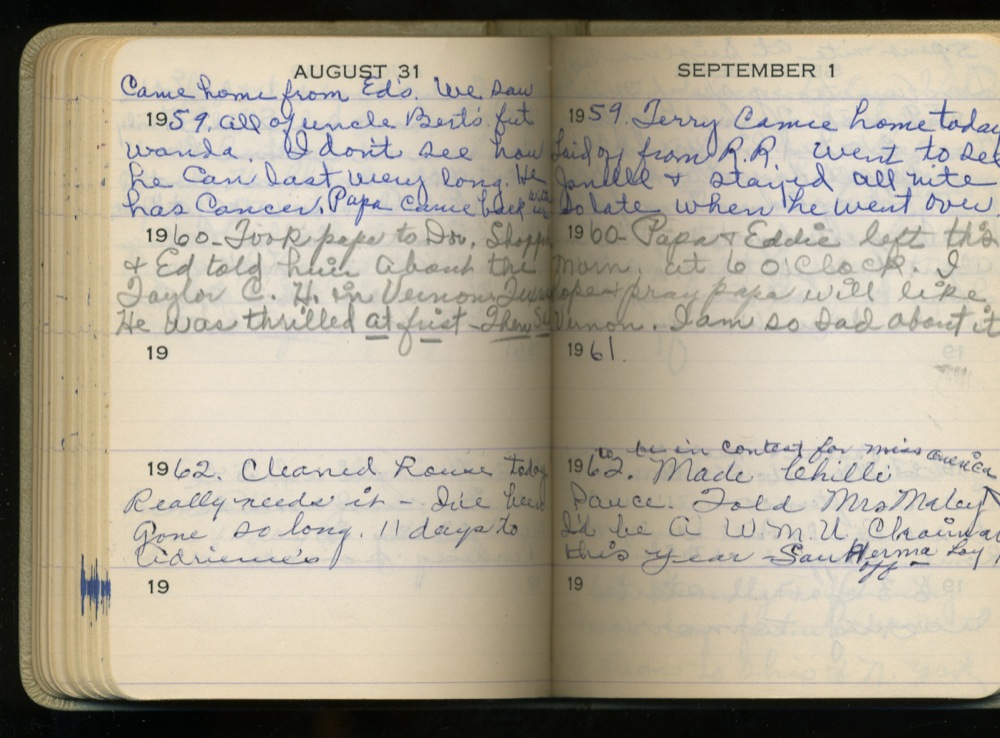 AUGUST 31
Came home from Ed's. We saw
1959. all of uncle Bert's but
wanda. I dont see how
he can last very long. He
has Cancer. Papa came back with us
1960 - Took papa to Doc, Shopp
& Ed told him about the
Taylor C. H. in Vernon Texas
He was thrilled at first - Then
19
1962. Cleaned House today
Really needs it - I've been
gone so long. 11 days to
Adrienne's
19
SEPTEMBER 1
1959. Terry Came home today
Laid off from R.R. Went to see
Janell & stayed all nite
So late when he went over
1960 - Papa & Eddie left this
morn. at 6 O'Clock. I
hope & pray papa will like
Vernon. I am so sad about it
1961.
to be in contest for miss america
1962. Made Chilli
Sauce. Told Mrs Maley
I'd be a W.M.U. Chairman
this year - Saw Herma Loy
off -
19